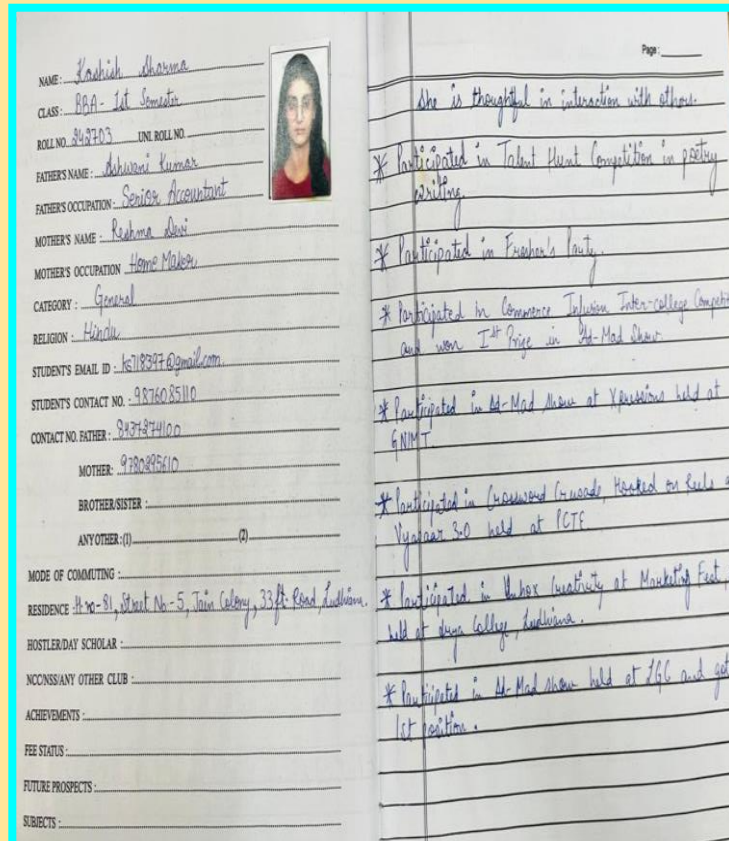 NAME : Kashish Sharma
CLASS : BBA - 1st Semester
ROLL NO. 242703 UNI. ROLL NO.
FATHER'S NAME : Ashwani Kumar
FATHER'S OCCUPATION : Senior Accountant
MOTHER'S NAME : Reshma Devi
MOTHER'S OCCUPATION Home Maker
CATEGORY : General
RELIGION : Hindu
STUDENT'S EMAIL ID : ks718397@gmail.com
STUDENT'S CONTACT NO. : 9876085110
CONTACT NO. FATHER : 8437274100
MOTHER: 9780295610
BROTHER/SISTER :
ANY OTHER : (1) (2)
MODE OF COMMUTING :
RESIDENCE H no-81, Street No-5, Jain Colony, 33 ft. Road, Ludhiana.
HOSTLER/DAY SCHOLAR :
NCC/NSS/ANY OTHER CLUB :
ACHIEVEMENTS :
FEE STATUS :
FUTURE PROSPECTS :
SUBJECTS :
Page :
She is thoughtful in interaction with others.
* Participated in Talent Hunt Competition in poetry
writing.
* Participated in Fresher's Party.
* Participated in Commerce Infusion Inter-college Competit
and won Ist Prize in Ad-Mad Show.
* Participated in Ad-Mad show at Xpressions held at
GNIMT.
* Participated in Crossword Crusade, Hooked on Reels a
Vyapaar 3.0 held at PCTE
* Participated in Unbox Creativity at Marketing Fest,
held at Arya College, Ludhiana.
* Participated in Ad-Mad show held at LGC and got
1st position.